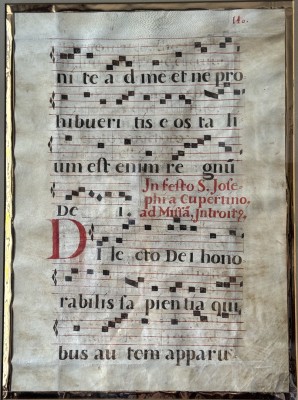 ni te a d me et ne pro
hibueri tis e os ta li
um est enim re gnū
De i.
In festo S. Jose
phi a Cupertino.
ad Missā, Introitꝰ.
DI le cto De i hono
rabilis sa pientia qui
bus au tem apparu